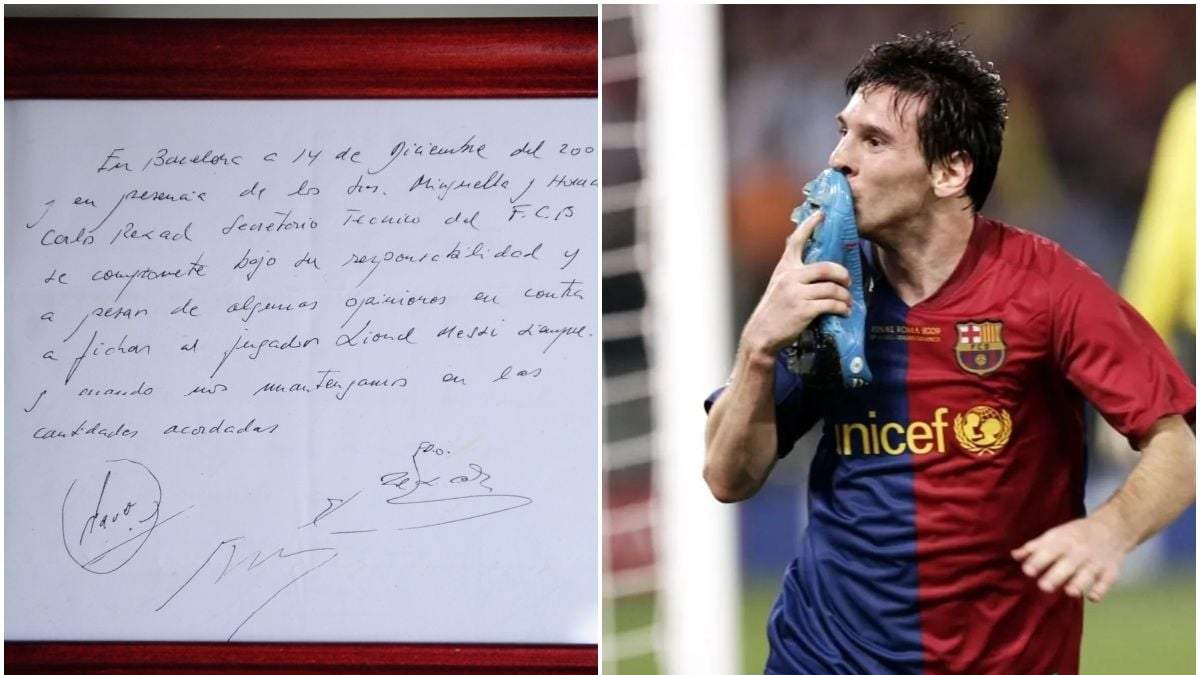 En Barcelona a 14 de Diciembre del 200
y en presencia de los Srs. Minguella y Horacio
Carlos Rexach Secretario Técnico del F.C.B
se compromete bajo su responsabilidad y
a pesar de algunas opiniones en contra
a fichar al jugador Lionel Messi siempre
y cuando nos mantengamos en las
cantidades acordadas
FINAL ROMA 2009
unicef